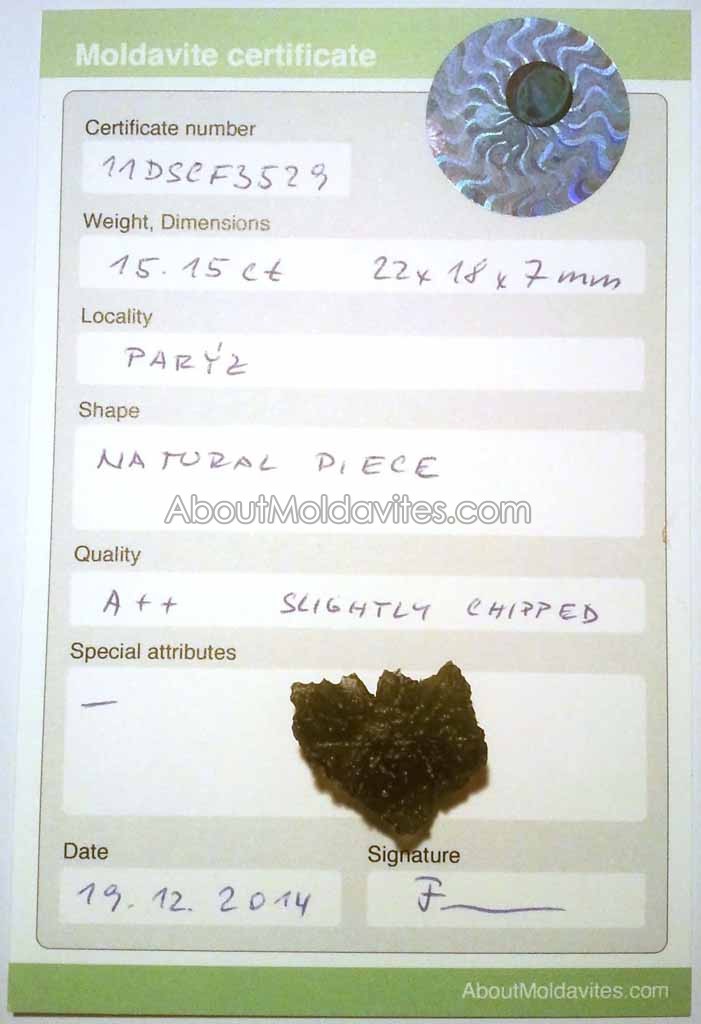 Moldavite certificate
Certificate number
11DSCF3529
Weight, Dimensions
15.15 ct 22 x 18 x 7 mm
Locality
PARÝZ
Shape
NATURAL PIECE
AboutMoldavites.com
Quality
A++ SLIGHTLY CHIPPED
Special attributes
—
Date
Signature
19. 12. 2014
AboutMoldavites.com